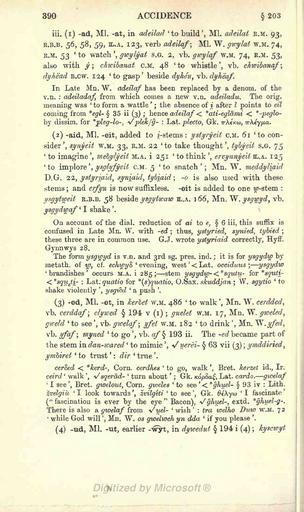 390 ACCIDENCE § 203
iii. (1) -ad, Ml. -at, in adeilad 'to build', Ml. adeilat R.M. 93,
R.B.B. 56, 58, 59, IL.A. 123, verb adeilaf; Ml. W. gwylat W.M. 74,
R.M. 53 'to watch', gwylyat S.G. 2, vb. gwylaf W.M. 74, R.M. 53,
also with ẏ; chwibanat C.M. 48 'to whistle', vb. chwibanaf;
dyhead B.CW. 124 'to gasp' beside dyhëu, vb. dyhëaf.
In Late Mn. W. adeilaf has been replaced by a denom. of the
v.n.: adeiladaf, from which comes a new v.n. adeiladu. The orig.
meaning was 'to form a wattle'; the absence of i̯ after l points to eil
coming from *egl- § 35 ii (3); hence adeilaf < *ati-eglāmi < *peglo-
by dissim. for *pleg-lo-, √plek/g- : Lat. plecto, Gk.
(2) -aid, Ml. -eit, added to i̯-stems: ystyrẏeit C.M. 61 'to con-
sider', synẏeit W.M. 33, R.M. 22 'to take thought', tybẏeit S.G. 75
'to imagine', meglẏeit M.A. i 251 'to think', erveunẏeit IL.A. 125
'to implore', ysglyfẏeit C.M. 5 'to snatch'; Mn. W. meddyliaid
D.G. 22, ystyriaid, syniaid, tybiaid; -o is also used with these
stems; and erfyn is now suffixless. -eit added to one w-stem:
ysgytweit R.B.B. 58 beside ysgytwaw IL.A. 166, Mn. W. ysgwyd, vb.
ysgydwaf 'I shake'.
On account of the dial. reduction of ai to e, § 6 iii, this suffix is
confused in Late Mn. W. with -ed; thus, ystyried, synied, tybied;
these three are common use. G.J. wrote ystyriaid correctly, Hyff.
Gynnwys 28.
The form ysgwyd is v.n. and 3rd sg. pres. ind.; it is for ysgydw by
metath. of w, cf. echwyd 'evening, west' < Lat. occiduus;—ysgydw
'brandishes' occurs M.A. i 285;
Lat. quatio for *(s)quatio, O.Sax. skuddjan; W. sgytio 'to
shake violently', ysgwd 'a push'.
(3) -ed, Ml. -et, in kerdet W.M. 486 'to walk', Mn. W. cerdded,
vb. cerddaf; clywed § 194 v (1); gwelet W.M. 17, Mn. W. gweled,
gweld 'to see', vb. gwelaf; yfet W.M. 182 'to drink', Mn. W. yfed,
vb. yfaf; myned 'to go', vb. af § 193 ii. The -ed became part of
the stem in dan-wared 'to mimic', § 63 vii (3); ymddiried,
ymbired 'to trust' : dir 'true'.
cerdded < *kerd-, Corn. cerdhes 'to go, walk', Bret. kerzet id., Ir.
ceird 'walk', 'turn about'; Gk. Lat. cardo.—gwelaf
'I see', Bret. gwelout, Corn. gweles 'to see' § 93 iv : Lith.
žvelgiù 'I look towards', žvilgėti 'to see', Gk. 'I fascinate'
("fascination is ever by the eye" Bacon),
There is also a gwelaf from 'wish' : tra welho Duw W.M. 72
'while God will', Mn. W. os gwelwch yn dda 'if you please'.
(4) -ud, Ml. -ut, earlier -wyt, in dywedut § 194 i (4); kyscwyt
Digitized by Microsoft®